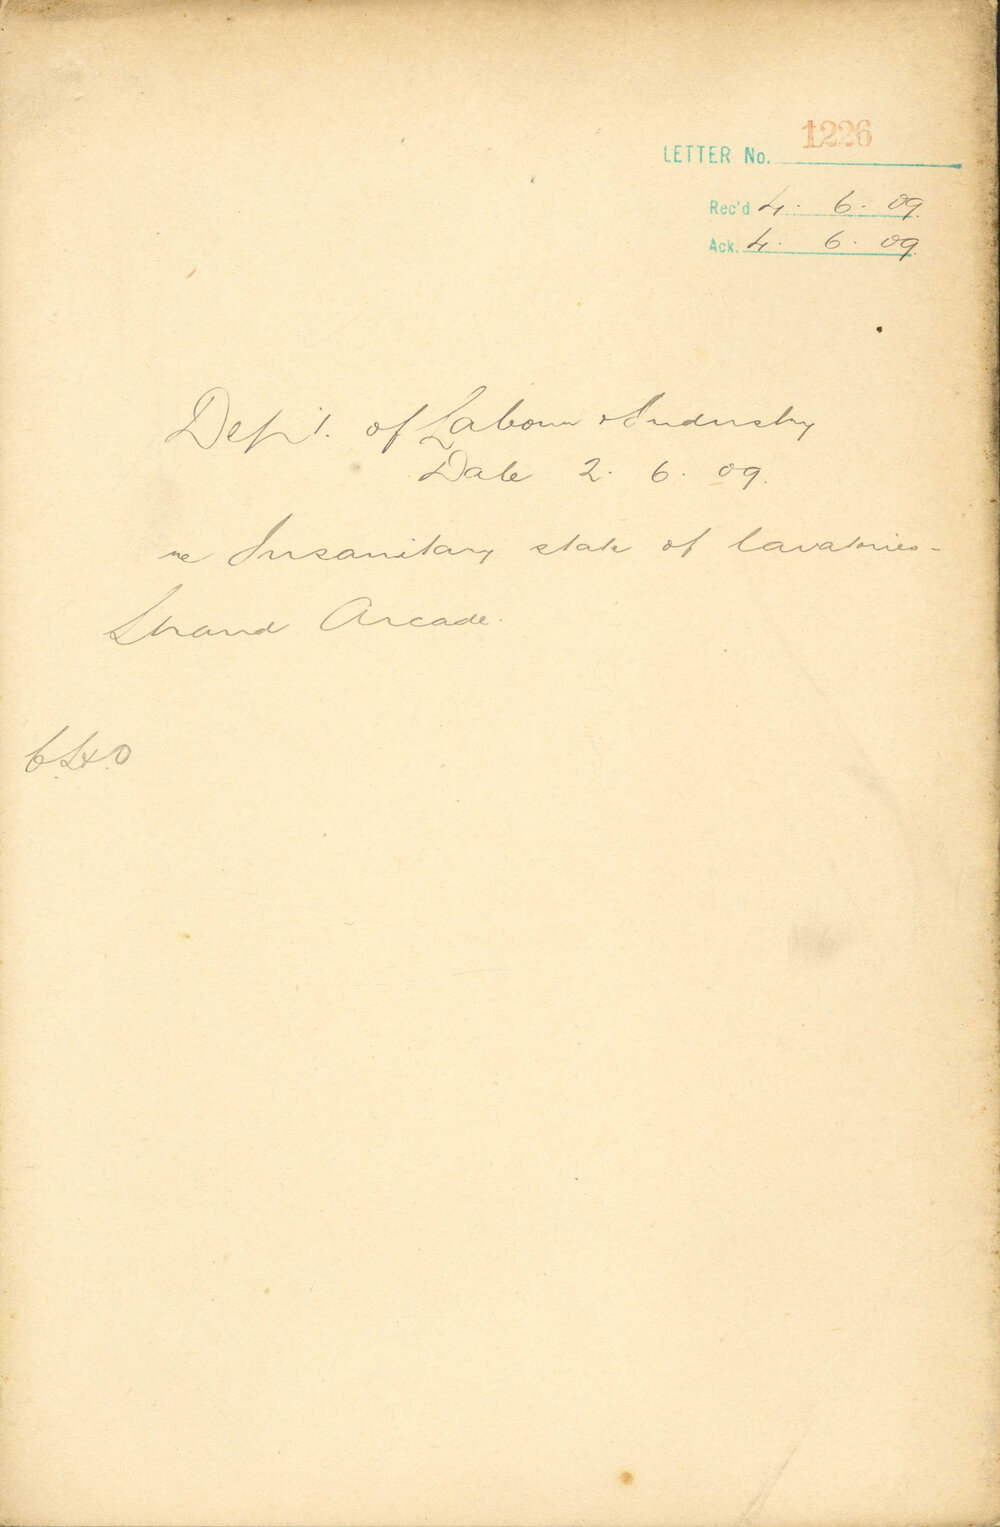 1226
LETTER No.
Rec'd 4. 6. 09.
Ack. 4. 6. 09.
Dep't. of Labour & Industry
Date 2. 6. 09.
re Insanitary state of lavatories -
Strand Arcade.